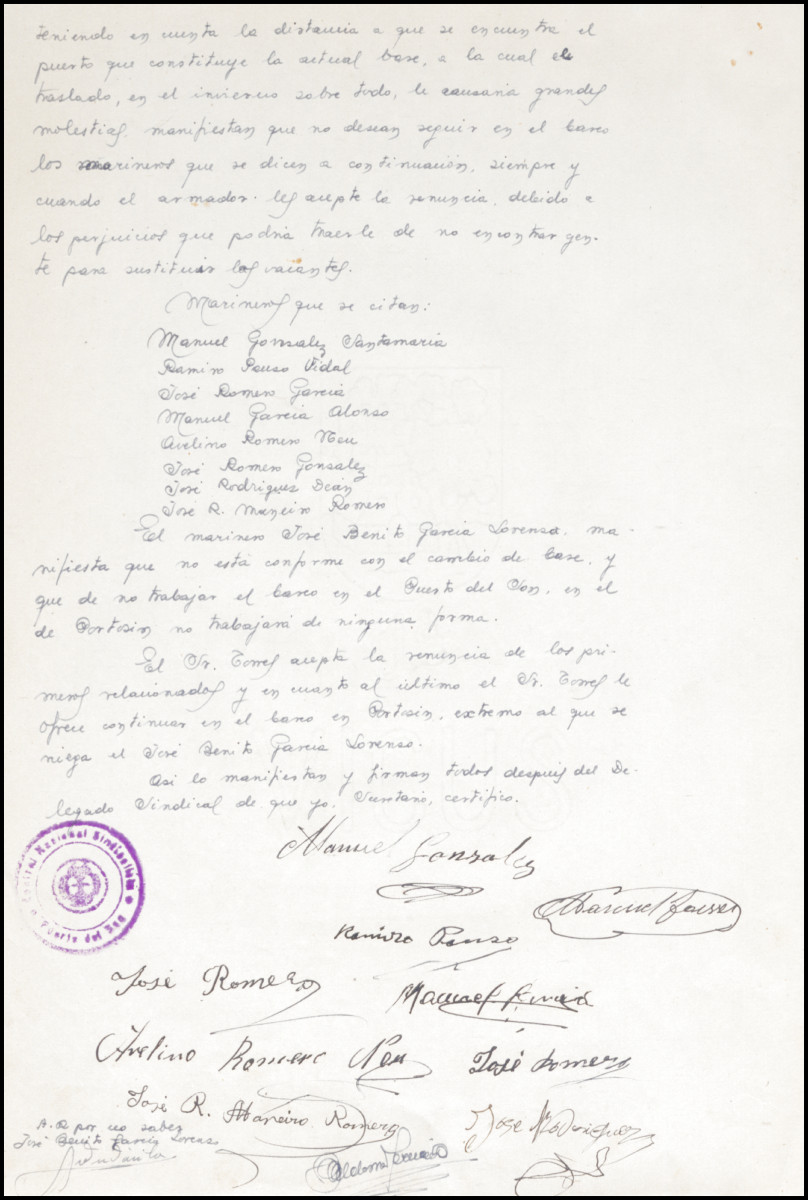 teniendo en cuenta la distancia a que se encuentra el
puerto que constituye la actual base, a la cual el
traslado, en el invierno sobre todo, le causaria grandes
molestias, manifiestan que no desean seguir en el barco
los marineros que se dicen a continuación, siempre y
cuando el armador les acepte la renuncia, debido a
los perjuicios que podria traerle de no encontrar gen-
te para sustituir las vacantes.
Marineros que se citan:
Manuel Gonsalez Santamaria
Ramiro Pouso Vidal
José Romero Garcia
Manuel Garcia Alonso
Avelino Romero Neu
José Romero Gonsalez
José Rodriguez Deán
José R. Maneiro Romero
El marinero José Benito Garcia Lorenso, ma-
nifiesta que no está conforme con el cambio de base, y
que de no trabajar el barco en el Puerto del Son, en el
de Portosin no trabajará de ninguna forma.
El Sr. Torres acepta la renuncia de los pri-
meros relacionados y en cuanto al ultimo el Sr. Torres le
ofrece continuar en el barco en Portosin, extremo al que se
niega el José Benito Garcia Lorenso.
Asi lo manifiestan y firman todos después del De-
legado Sindical de que yo, Secretario, certifico.
Central Nacional Sindicalista
Puerto del Son
Manuel Gonsalez
Manuel
Ramiro Pouso
José Romero
Manuel Garcia
Avelino Romero Neu
José Romero
José R. Maneiro Romero
José Rodriguez
A. R por no saber
José Benito Garcia Lorenso